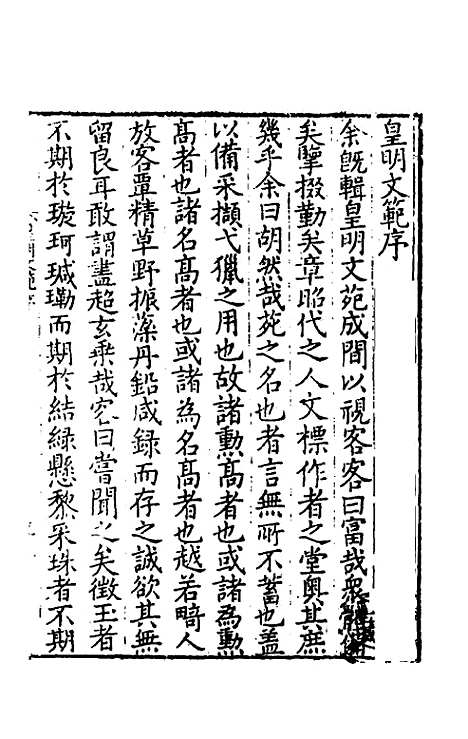 皇明文範序
余旣輯皇明文苑成間以視客客曰富哉衆體備
矣擥掇勤矣章昭代之人文標作者之堂奧其庶
幾乎余曰胡然哉苑之名也者言無所不蓄也盖
以備采擷弋獵之用也故諸勳高者也或諸為勳
高者也諸名高者也或諸為名高者也越若畸人
放客覃精草野振藻丹鉛咸録而存之誠欲其無
留良耳敢謂盡超玄乗哉客曰嘗聞之矣徵王者
不期於璇珂瑊玏而期於結緑懸黎采珠者不期